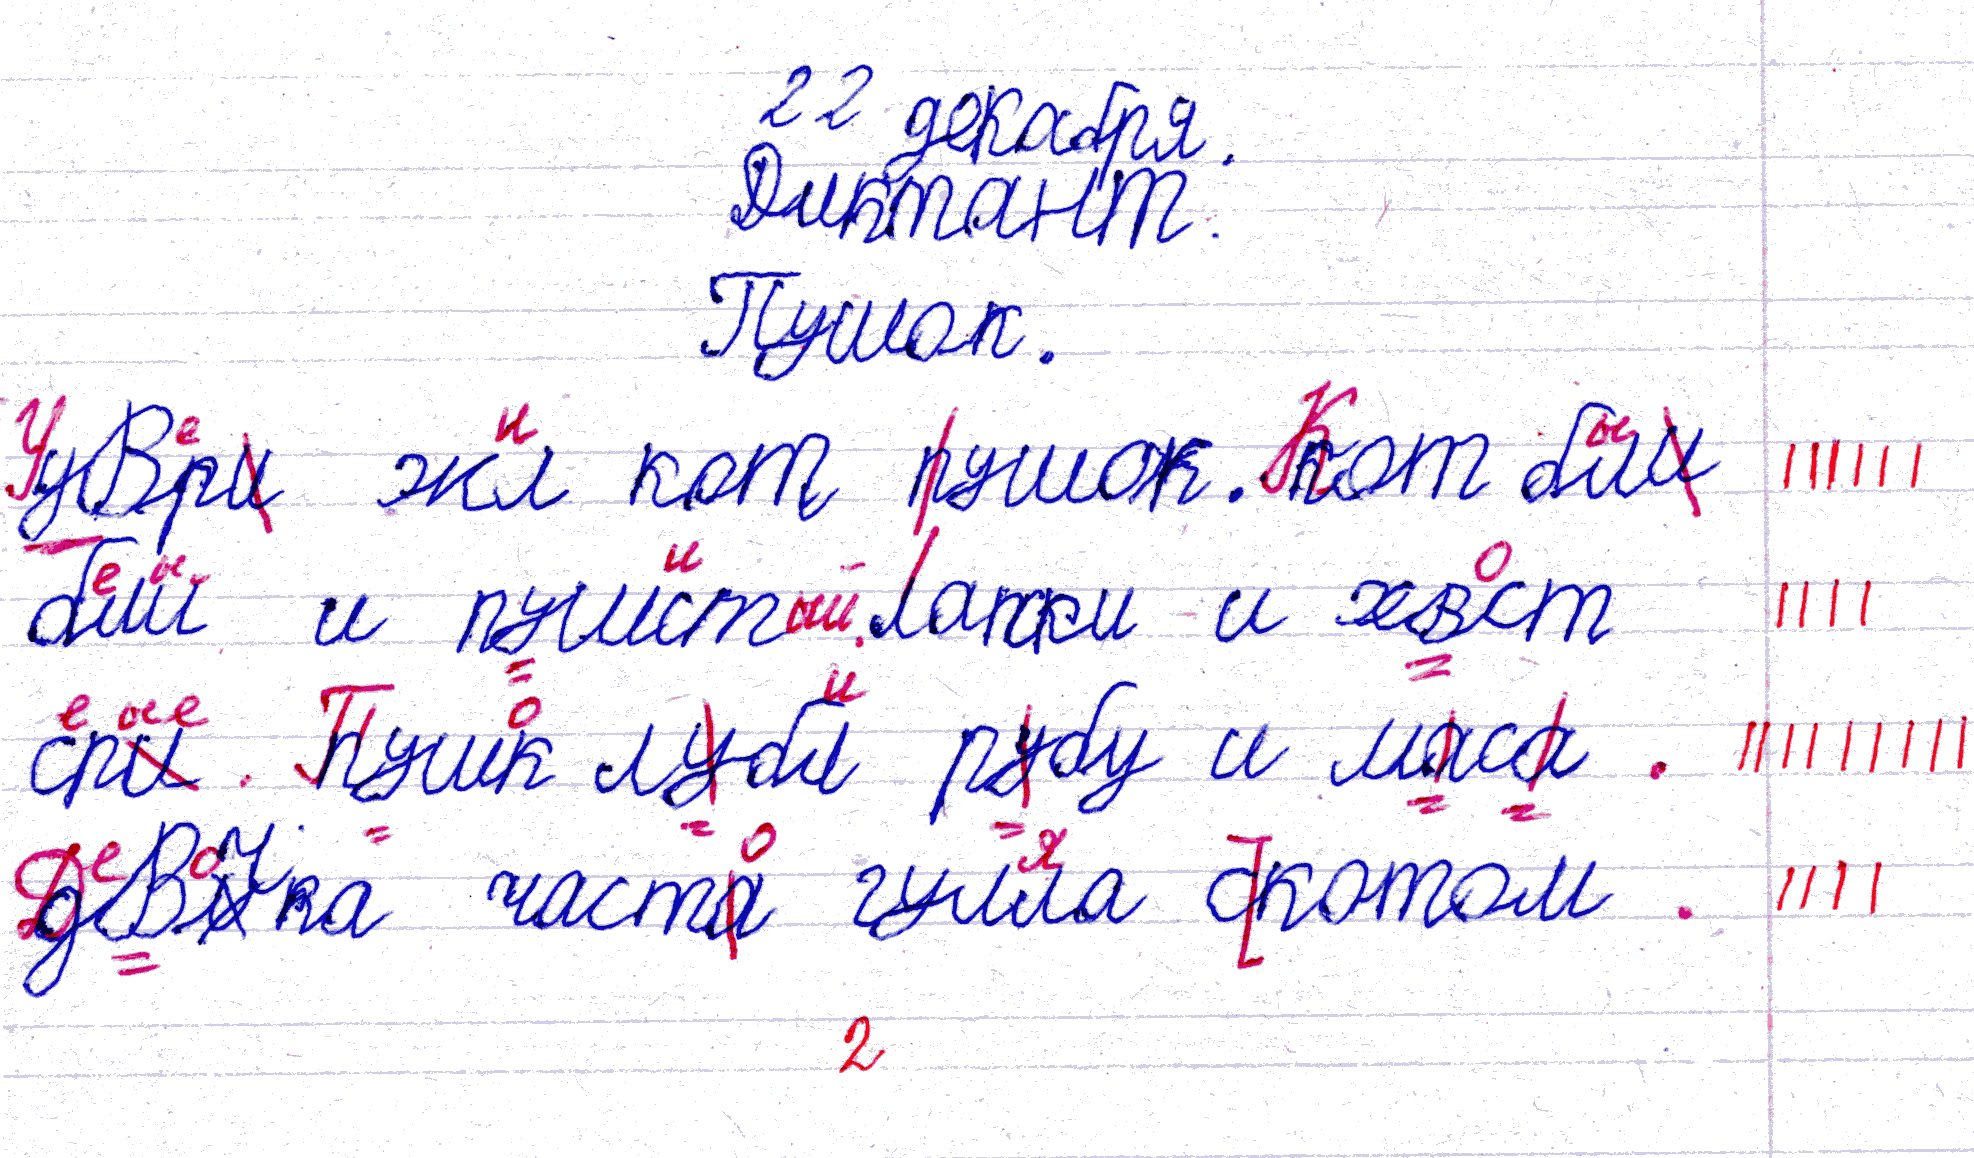 22 декабря.
Диктант.
Пушок.
уВри жл кот пушок. кот бии
бли и пушстый. Лапки и хвст
сри. Пушк лубл рубу и маса.
деВчка часта гулла скотом.
2